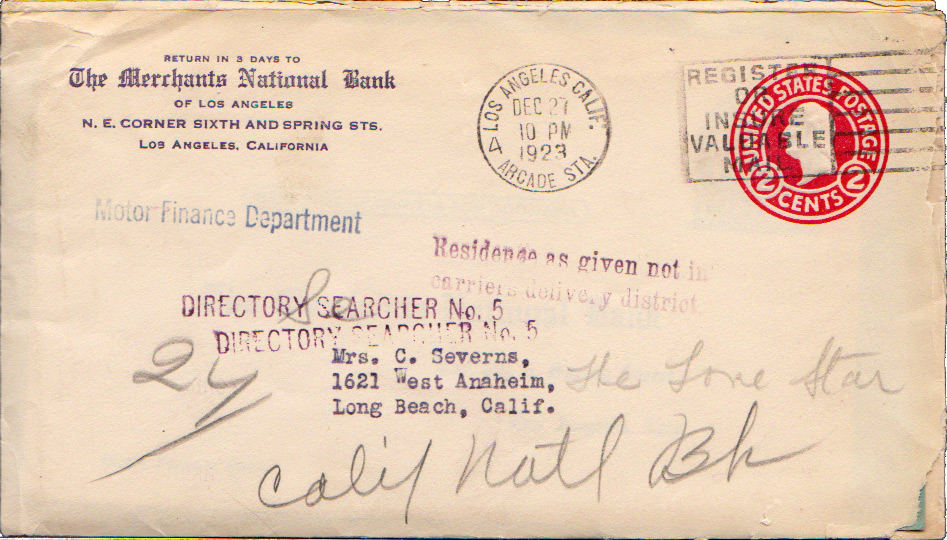 RETURN IN 3 DAYS TO
The Merchants National Bank
OF LOS ANGELES
N. E. CORNER SIXTH AND SPRING STS.
LOS ANGELES, CALIFORNIA
LOS ANGELES, CALIF.
DEC 27
10 PM
1923
ARCADE STA.
REGISTER
OR
INSURE
VALUABLE
MAIL
UNITED STATES POSTAGE
2 CENTS 2
Motor Finance Department
Residence as given not in
carriers delivery district
DIRECTORY SEARCHER No. 5
DIRECTORY SEARCHER No. 5
Mrs. C. Severns,
1621 West Anaheim,
Long Beach, Calif.
The Lone Star
Calif Natl Bk